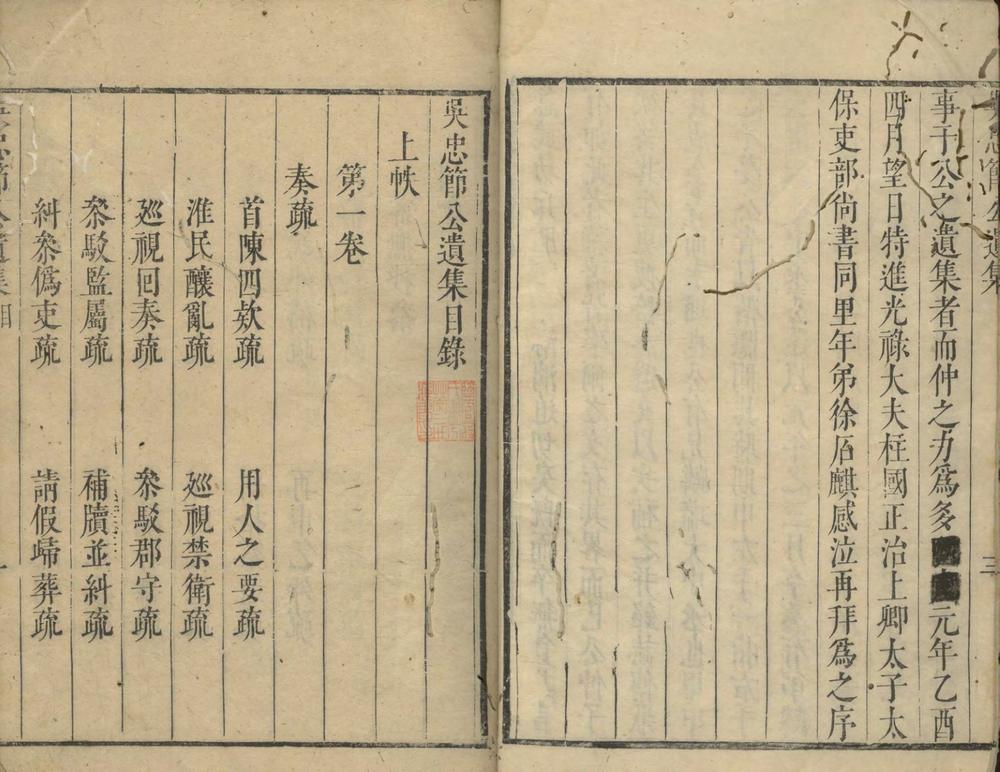 事于公之遺集者而仲之力爲多元年乙酉
四月望日特進光祿大夫柱國正治上卿太子太
保吏部尚書同里年弟徐石麒感泣再拜爲之序
三
吳忠節公遺集目錄
上帙
第一卷
奏疏
首陳四欵疏 用人之要疏
淮民釀亂疏 廵視禁衛疏
廵視回奏疏 叅駁郡守疏
叅駁監屬疏 補牘並糾疏
糾叅僞吏疏 請假歸葬疏